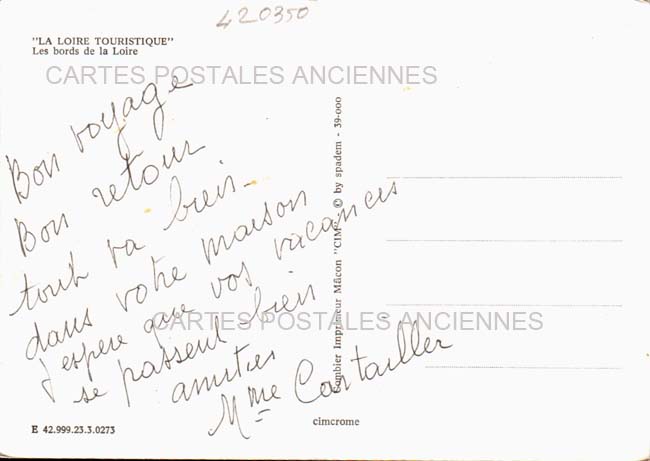 420350
"LA LOIRE TOURISTIQUE"
Les bords de la Loire
CARTES POSTALES ANCIENNES
Bon voyage
Bon retour
tout va bien
dans votre maison
J'espere que vos vacances
se passent bien
amities
Mme
CARTES POSTALES ANCIENNES
Combier Imprimeur Mâcon "CIM" © by spadem - 39-000
E 42.999.23.3.0273
cimcrome